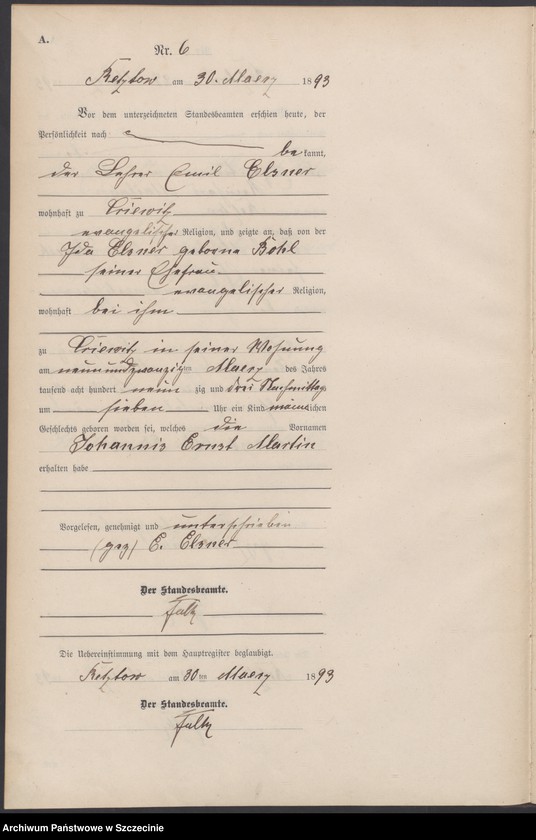 A.
Nr. 6
Ketztow am 30. Maerz 1893
Vor dem unterzeichneten Standesbeamten erschien heute, der
Persönlichkeit nach
be kannt,
der Lehrer Emil Elsner
wohnhaft zu Criewitz
evangelischer Religion, und zeigte an, daß von der
Ida Elsner geborne Bohl
seiner Ehefrau
evangelischer Religion,
wohnhaft bei ihm
zu Criewitz in seiner Wohnung
am neunundzwanzigten Maerz des Jahres
tausend acht hundert neun zig und drei Nachmittags
um sieben Uhr ein Kind männlichen
Geschlechts geboren worden sei, welches die Vornamen
Johannis Ernst Martin
erhalten habe
Vorgelesen, genehmigt und unterschrieben
(gez) E. Elsner
Der Standesbeamte.
Die Uebereinstimmung mit dem Hauptregister beglaubigt.
Ketztow am 30ten Maerz 1893
Der Standesbeamte.
Archiwum Państwowe w Szczecinie